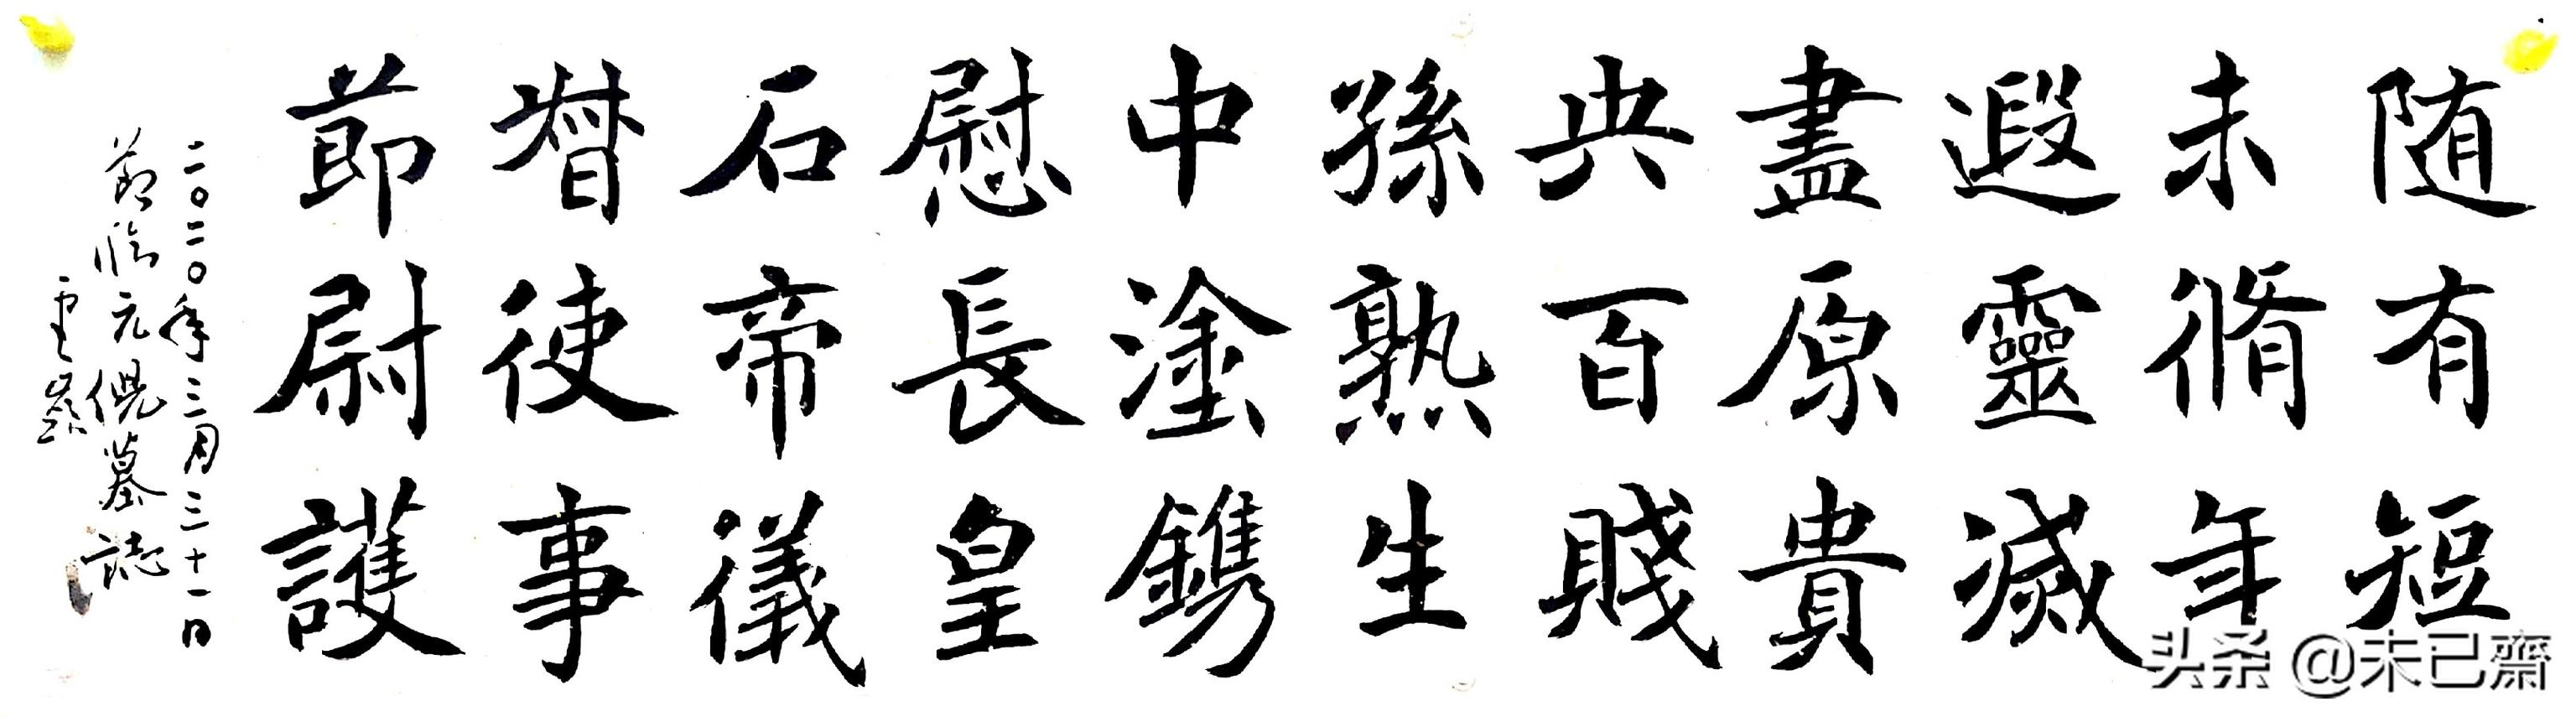 随有短
未脩年
遐靈滅
盡原貴
央百賤
孫熟生
中塗鐫
慰長皇
石帝儀
督使事
節尉護
二〇二〇年三月三十一日
節临元倪墓誌
头条 @未已齋